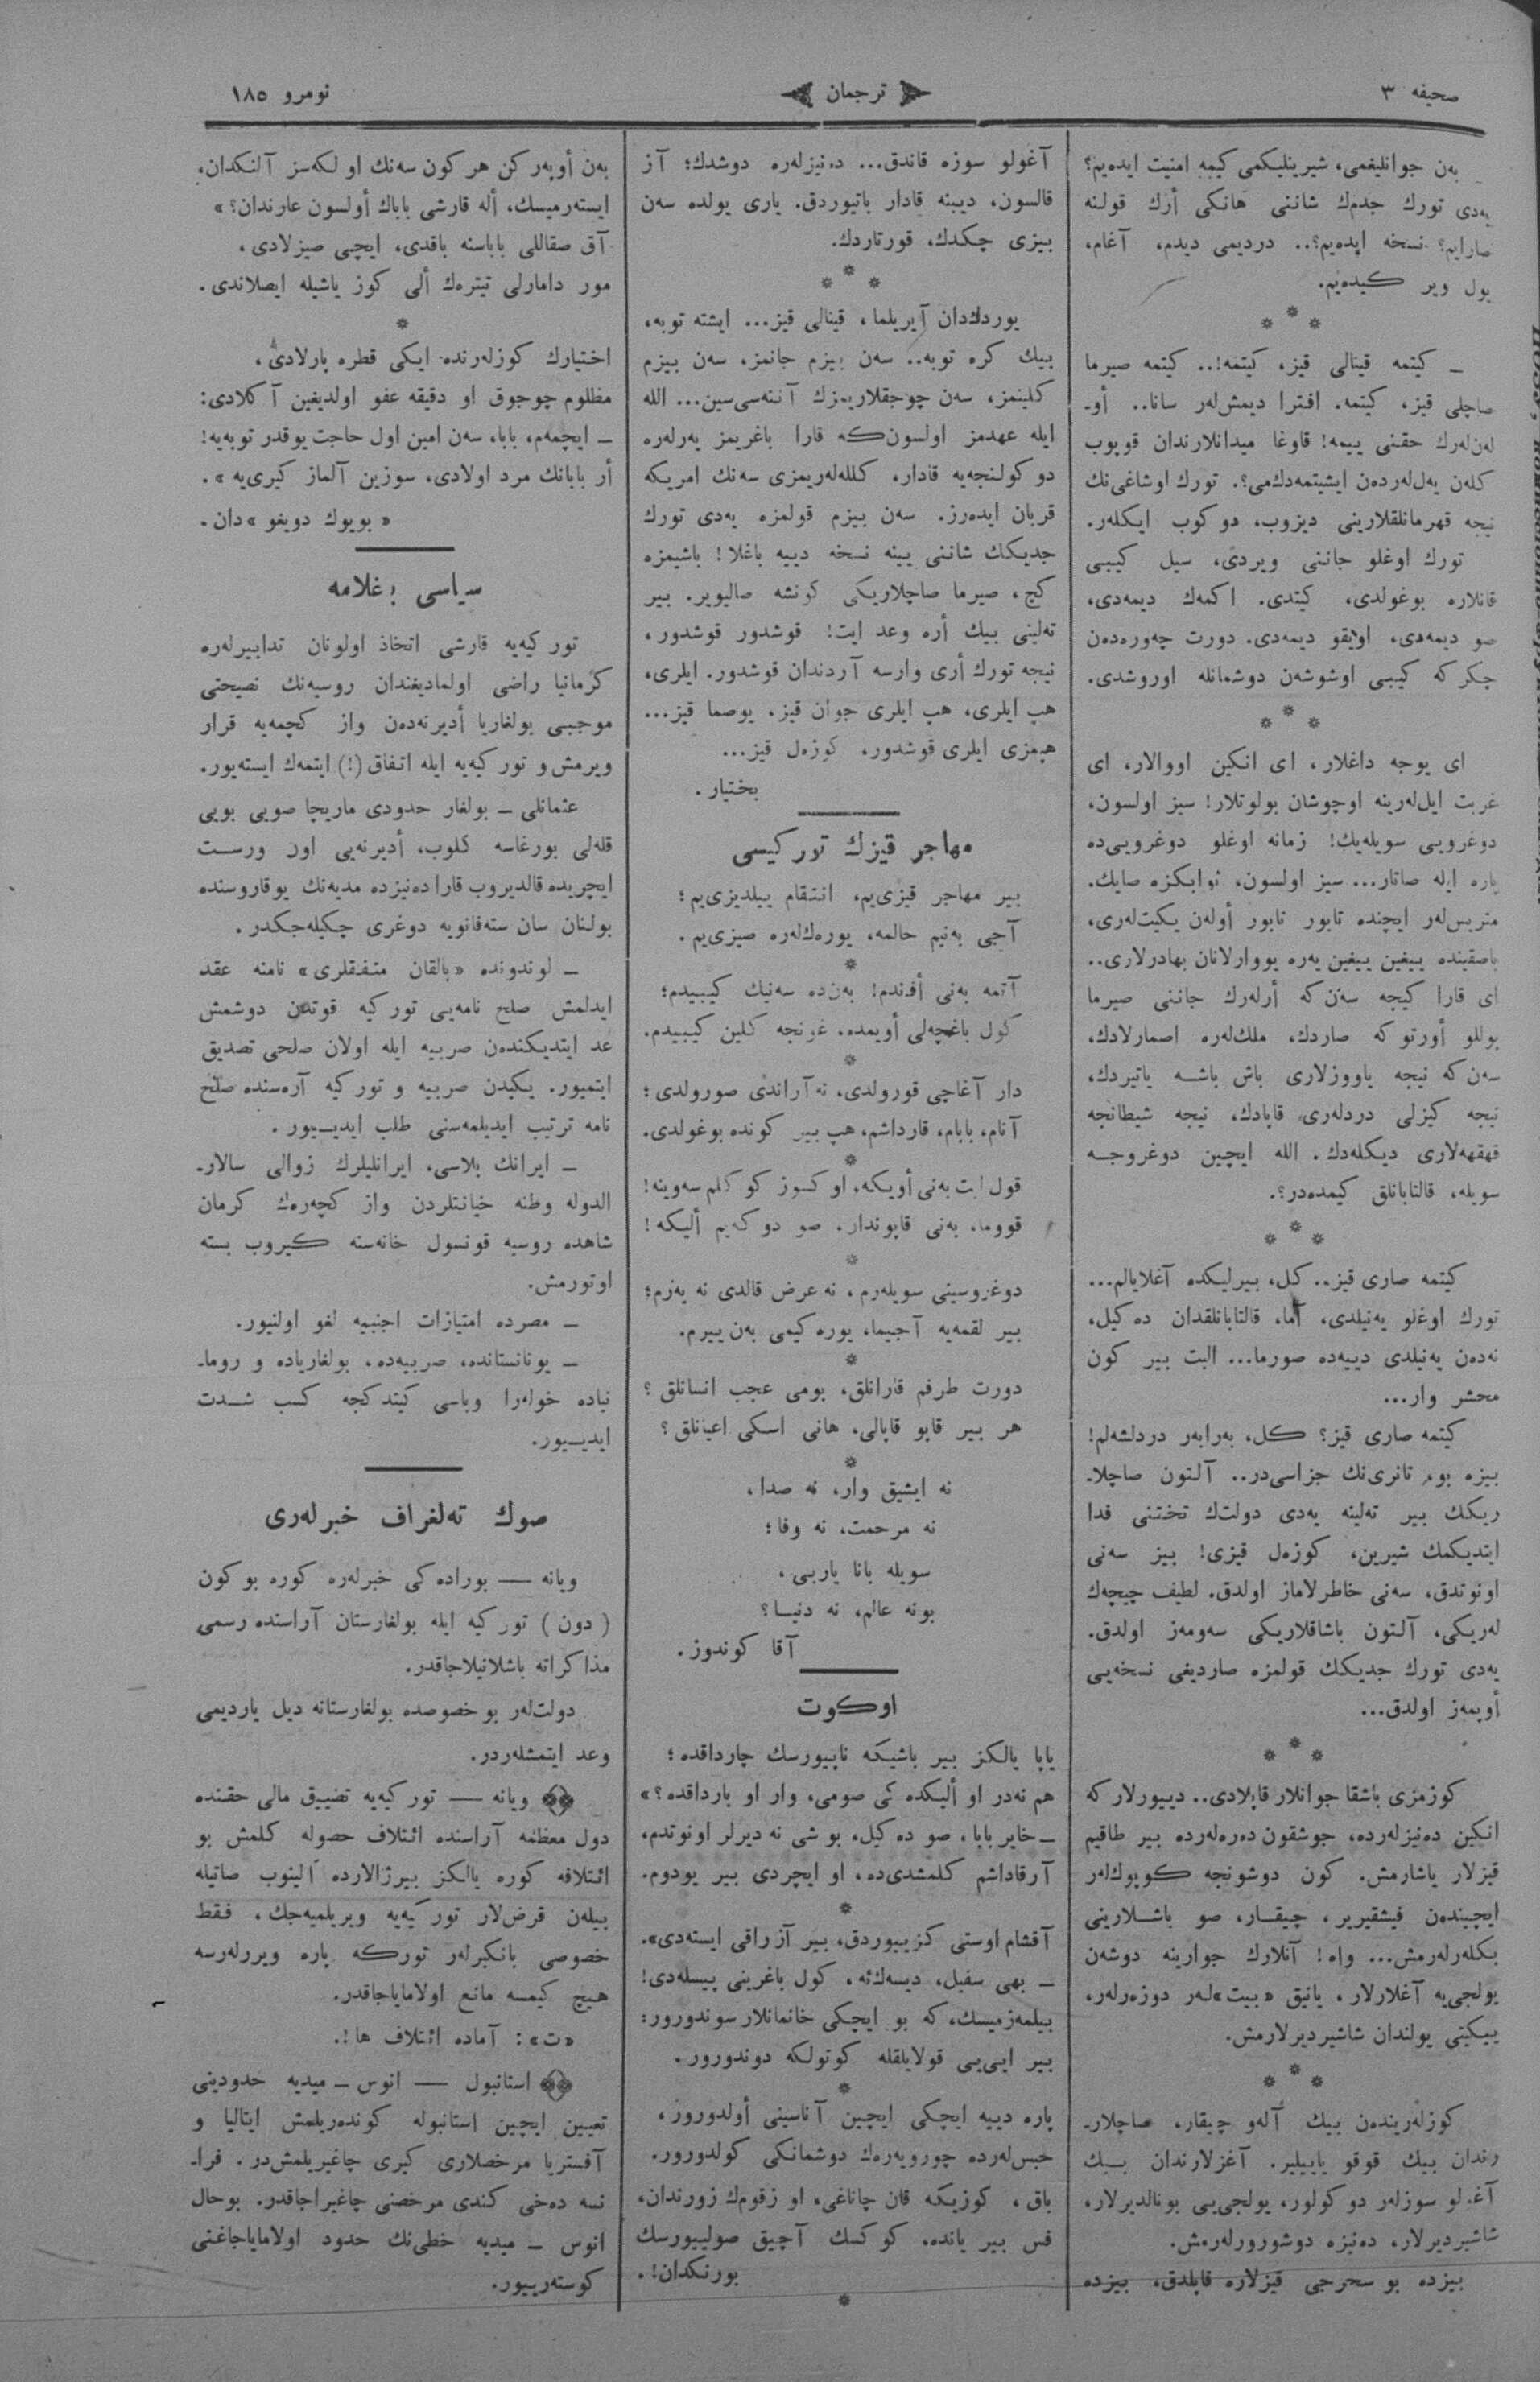 صحیفه ٣
ترجمان
نومرو ١٨٥
بەن جوانلیغمی، شیرینلیکمی کیمه امنیت ایدەیم؟
یەدی تورك جدمك شاننی هانکی أرك قولنه
صارایم؟ نسخه ایدەیم؟.. دردیمی دیدم، آغام،
یول ویر کیدەیم.
ـ کیتمه قینالی قیز، کیتمه!.. کیتمه صیرما
صاچلی قیز، کیتمه. افترا دیمش‌لەر سانا.. أوـ
لەن‌لەرك حقنی ییمه! قاوغا میدانلارندان قوپوب
کلەن یەل‌لەردەن ایشیتمەدك‌می؟. تورك اوشاغی‌نك
نیجه قهرمانلقلارینی دیزوب، دوکوب ایکلەر.
تورك اوغلو جاننی ویردی، سیل کیبی
قانلاره بوغولدی، کیتدی. اکمەك دیمەدی،
صو دیمەدی، اویقو دیمەدی. دورت چەورەدەن
چکرکه کیبی اوشوشەن دوشمانله اوروشدی.
ای یوجه داغلار، ای انکین اووالار، ای
غربت ایل‌لەرینه اوچوشان بولوتلار! سیز اولسون،
دوغرویی سویلەیك! زمانه اوغلو دوغرویی‌ده
پاره ایله صاتار... سیز اولسون، ثوابکزه صایك.
متریس‌لەر ایچنده تابور تابور أولەن یکیت‌لەری،
باصقینده ییغین ییغین یەره یووارلانان بهادرلاری..
ای قارا کیجه سەن‌که أرلەرك جاننی صیرما
بوللو أورتوکه صاردك، ملك‌لەره اصمارلادك،
سەن‌که نیجه یاووزلاری باش باشـه یاتیردك،
نیجه کیزلی دردلەری قاپادك، نیجه شیطانجه
قهقهه‌لاری دیکلەدك. الله ایچین دوغروجـه
سویله، قالتابانلق کیمدەدر؟.
کیتمه صاری قیز.. کل، بیرلیکده آغلایالم...
تورك اوغلو یەنیلدی، آما، قالتابانلقدان دەکیل،
نەدەن یەنیلدی دییەده صورما... البت بیر کون
محشر وار...
کیتمه صاری قیز؟ کل، بەرابەر دردلشەلم!
بیزه بوم تانری‌نك جزاسی‌در.. آلتون صاچلاـ
ریکك بیر تەلینه یەدی دولت‌ك تختنی فدا
ایتدیکمك شیرین، کوزەل قیزی! بیز سەنی
اونوتدق، سەنی خاطرلاماز اولدق. لطیف چیچەك
لەریکی، آلتون باشاقلاریکی سەومەز اولدق.
یەدی تورك جدیکك قولمزه صاردیغی نسخه‌یی
أوپمەز اولدق...
کوزمزی باشقا جوانلار قاپلادی.. دییورلارکه
انکین دەنیزلەرده، جوشقون دەرەلەرده بیر طاقیم
قیزلار یاشارمش. کون دوشونجه کوپوك‌لەر
ایچیندەن فیشقیریر، چیقـار، صو باشـلارینی
بکلەرلەرمش... واه! آنلارك جوارینه دوشەن
یولجی‌یه آغلارلار، یانیق «بیت»لەر دوزەرلەر،
ییکیتی یولندان شاشیردیرلارمش.
کوزلەریندەن بیك آلەو چیقار، صاچلارـ
رندان بیك قوقو یاییلیر. آغزلارندان بـیك
آغولو سوزلەر دوکولور، یولجی‌یی بونالدیرلار،
شاشیردیرلار، دەنیزه دوشورورلەرمش.
بیزده بو سحرجی قیزلاره قاپلدق، بیزده
آغولو سوزه قاندق... دەنیزلەره دوشدك؛ آز
قالسون، دیبنه قادار باتیوردق. یاری یولده سەن
بیزی چکدك، قورتاردك.
یوردك‌دان آیریلما، قینالی قیز... ایشته توبه،
بیك کره توبه.. سەن بیزم جانمز، سەن بیزم
کلینمز، سەن چوجقلاریمزك آننەسی‌سین... الله
ایله عهدمز اولسون‌که قارا باغریمز یەرلەره
دوکولنجه‌یه قادار، کللەلەریمزی سەنك امریکه
قربان ایدەرز. سەن بیزم قولمزه یەدی تورك
جدیکك شاننی یینه نسخه دییه باغلا! باشیمزه
کچ، صیرما صاچلاریکی کونشه صالیویر. بیر
تەلینی بیك أره وعد ایت! قوشدور قوشدور،
نیجه تورك أری وارسه آردندان قوشدور. ایلری،
هپ ایلری، هپ ایلری جوان قیز، یوصما قیز...
هپمزی ایلری قوشدور، کوزەل قیز...
بختیار.
مهاجر قیزك تورکیسی
بیر مهاجر قیزی‌یم، انتقام ییلدیزی‌یم؛
آجی بەنیم حالمه، یورەك‌لەره صیزی‌یم.
آتمه بەنی أفندم! بەن‌ده سەنیك کیبیدم؛
کول باغچەلی أویمده، غونجه کلین کیبیدم.
دار آغاجی قورولدی، نه آراندی صورولدی؛
آنام، بابام، قارداشم، هپ بیر کونده بوغولدی.
قول ایت بەنی أویکه، اوکسوز کوکلم سەوینه!
قووما، بەنی قاپوندار، صو دوکەیم ألیکه!
دوغروسینی سویلەرم، نه عرض قالدی نه یەرم؛
بیر لقمه‌یه آجیما، یورەکیمی بەن ییرم.
دورت طرفم قارانلق، بومی عجب انسانلق؟
هر بیر قاپو قاپالی، هانی اسکی اعیانلق؟
نه ایشیق وار، نه صدا،
نه مرحمت، نه وفا؛
سویله بانا یاربی،
بونه عالم، نه دنیـا؟
آقا کوندوز.
اوکوت
یاپا یالکز بیر باشیکه ناپیورسك چارداقده؛
هم نەدر او ألیکده کی صومی، وار او بارداقده؟»
ـ خایر بابا، صو دەکیل، بو شی نه دیرلر اونوتدم،
آرقاداشم کلمشدی‌ده، او ایچردی بیر یودوم.
آقشام اوستی کزییوردق، بیر آز راقی ایستەدی».
ـ بهی سفیل، دیسەك‌ئه، کول باغرینی پیسلەدی!
بیلمەزمیسك، که بو ایچکی خانمانلار سوندورور:
بیر ایی‌یی قولایلقله کوتولکه دوندورور.
پاره دییه ایچکی ایچین آناسینی أولدورور،
حبس‌لەرده چورویەرەك دوشمانکی کولدورور.
باق، کوزیکه قان چاناغی، او زقومك زورندان،
فس بیر یانده، کوکسك آچیق صولییورسك
بورنکدان!.
بەن أوپەرکن هر کون سەنك اولکەسز آلنکدان،
ایستەرمیسك، أله قارشی باباك أولسون عارندان؟»
آق صقاللی باباسنه باقدی، ایچی صیزلادی،
مور دامارلی تیترەك ألی کوز یاشیله ایصلاندی.
اختیارك کوزلەرنده ایکی قطره پارلادی،
مظلوم چوجوق او دقیقه عفو اولدیغین آکلادی:
ـ ایچمەم، بابا، سەن امین اول حاجت یوقدر توبەیه!
أر بابانك مرد اولادی، سوزین آلماز کیری‌یه».
«بویوك دویغو»دان.
سیاسی یغلامه
تورکیه‌یه قارشی اتخاذ اولونان تدابیرلەره
کرمانیا راضی اولمادیغندان روسیەنك نصیحتی
موجبی بولغاریا أدیرنەدەن واز کچمه‌یه قرار
ویرمش و تورکیه‌یه ایله اتفاق (!) ایتمەك ایستەیور.
عثمانلی ـ بولغار حدودی ماریچا صویی بویی
قلەلی بورغاسه کلوب، أدیرنەیی اون ورسـت
ایچریده قالدیروب قارا دەنیزده مدیەنك یوقاروسنده
بولنان سان ستەفانویه دوغری چکیلەجکدر.
ـ لوندونده «بالقان متفقلری» نامنه عقد
ایدلمش صلح نامەیی تورکیه قوتدن دوشمش
عد ایتدیکندەن صربیه ایله اولان صلحی تصدیق
ایتمیور. یکیدن صربیه و تورکیه آرەسنده صلح
نامه ترتیب ایدیلمەسنی طلب ایدیـیور.
ـ ایرانك بلاسی، ایرانلیلرك زوالی سالارـ
الدوله وطنه خیانتلردن واز کچەرەك کرمان
شاهده روسیه قونسول خانەسنه کیروب بسته
اوتورمش.
ـ مصرده امتیازات اجنبیه لغو اولنیور.
ـ یونانستانده، صربیەده، بولغاریاده و روماـ
نیاده خولەرا وباسی کیتدکجه کسب شـدت
ایدیـیور.
صوك تەلغراف خبرلەری
ویانه — بورادەکی خبرلەره کوره بوکون
(دون) تورکیه ایله بولغارستان آراسنده رسمی
مذاکراته باشلانیلاجاقدر.
دولت‌لەر بو خصوصده بولغارستانه دیل یاردیمی
وعد ایتمشلەردر.
ویانه — تورکیه‌یه تضییق مالی حقنده
دول معظمه آراسنده ائتلاف حصوله کلمش بو
ائتلافه کوره یالکز بیرژالارده آلینوب صاتیله
بیلەن قرض‌لار تورکیه‌یه ویریلمیەجك، فقط
خصوصی بانکیرلەر تورکه پاره ویررلەرسه
هیچ کیمسه مانع اولامایاجاقدر.
«ت»: آماده ائتلاف ها!.
استانبول — انوس ـ میدیه حدودینی
تعیین ایچین استانبوله کوندەریلمش ایتالیا و
آفستریا مرخصلاری کیری چاغیریلمش‌در. فراـ
نسه دەخی کندی مرخصنی چاغیراجاقدر. بوحال
انوس ـ میدیه خطی‌نك حدود اولامایاجاغنی
کوستەرییور.